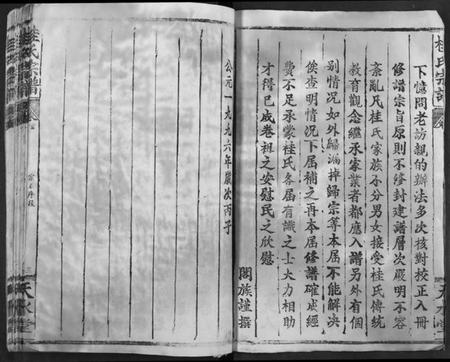 桂氏宗譜
下憶問老訪親的辦法多次核對校正入冊
修譜宗旨原則不修封建譜層次嚴明不容
紊亂凡桂氏家族不分男女接受桂氏傳統
教育觀念繼承家業者都應入譜另外有個
別情況如外歸漏掉歸宗等本屆不能解決
俟查明情況下屆補之再本屆修譜確成經
費不足承蒙桂氏各屆有識之士大力相助
才得已成卷祖之安慰民之欣慰
闔族謹撰
公元一九九六年歲次丙子
桂氏宗譜
天水堂